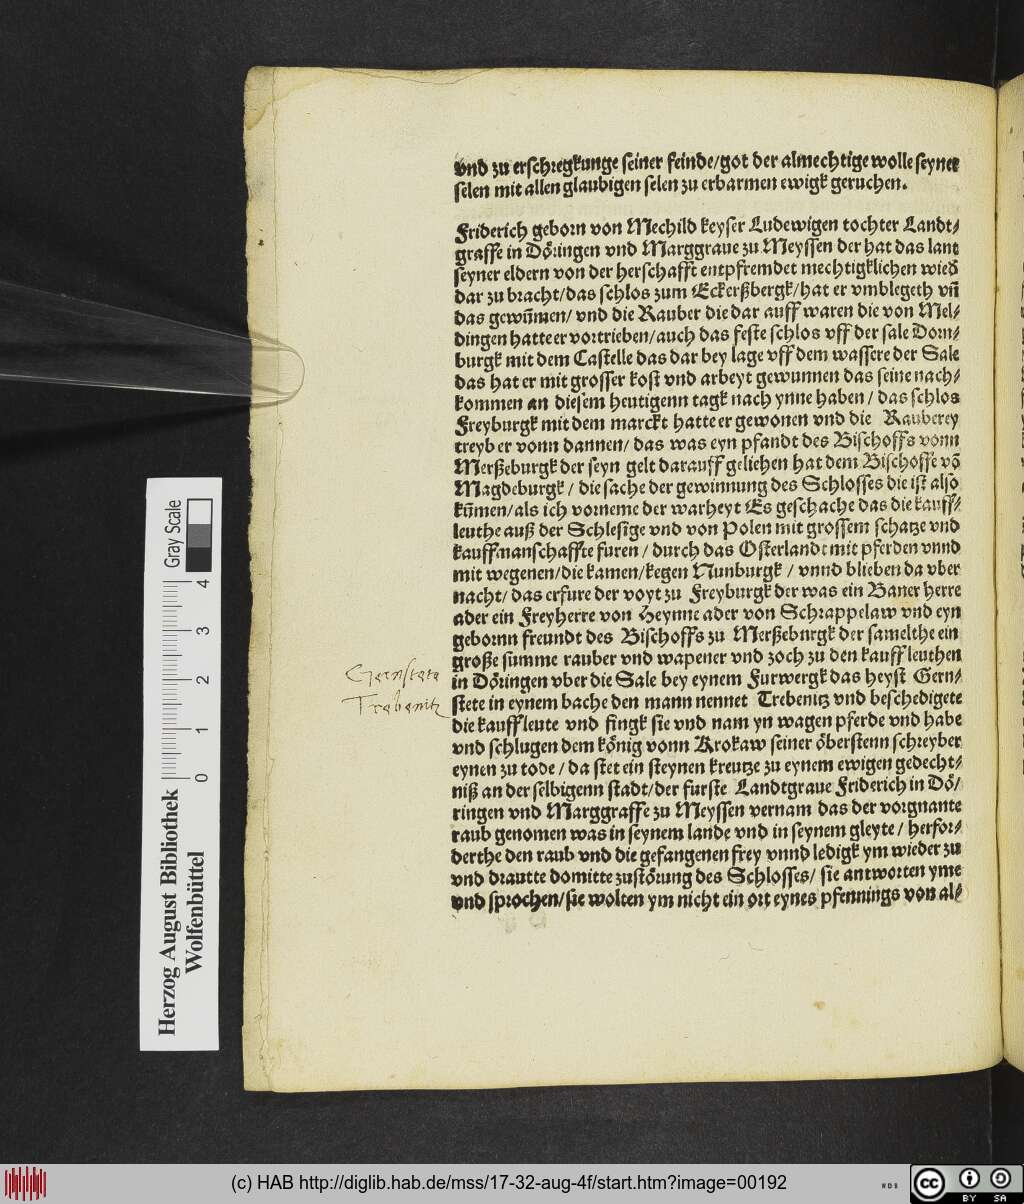 vnd zu erschregkunge seiner feinde/got der almechtige wolle seyner
selen mit allen glaubigen selen zu erbarmen ewigk geruchen.
Friderich geborn von Mechild keyser Ludewigen tochter Landt⸗
graffe in Döringen vnd Marggraue zu Meyssen der hat das lant
seyner eldern von der herschafft entpfremdet mechtigklichen wied
dar zu bracht/das schlos zum Eckerßbergk/hat er vmblegeth vn̄
das gewūnen/ vnd die Rauber die dar auff waren die von Mel⸗
dingen hatte er vortrieben/auch das feste schlos vff der sale Dorn⸗
burgk mit dem Castelle das dar bey lage vff dem wassere der Sale
das hat er mit grosser kost vnd arbeyt gewunnen das seine nach⸗
kommen an diesem heutigenn tagk nach ynne haben / das schlos
Freyburgk mit dem marckt hatte er gewonen vnd die Rauberey
treyb er vonn dannen/ das was eyn pfandt des Bischoffs vonn
Merßeburgk der seyn gelt darauff geliehen hat dem Bischoffe vō
Magdeburgk / die sache der gewinnung des Schlosses die ist also
kūmen/als ich vorneme der warheyt Es geschache das die kauff⸗
leuthe auß der Schlesige vnd von Polen mit grossem schatze vnd
kauffmanschaffte furen / durch das Osterlandt mit pferden vnnd
mit wegenen/die kamen/kegen Nunburgk / vnnd blieben da vber
nacht/ das erfure der voyt zu Freyburgk der was ein Baner herre
ader ein Freyherre von Heynne ader von Schrappelaw vnd eyn
gebornn freundt des Bischoffs zu Merßeburgk der samelthe ein
große summe rauber vnd wapener vnd zoch zu den kauffleuthen
in Döringen vber die Sale bey eynem Furwergk das heyst Gern⸗
stete in eynem bache den mann nennet Trebenitz vnd beschedigete
die kauffleute vnd fingk sie vnd nam yn wagen pferde vnd habe
vnd schlugen dem könig vonn Krokaw seiner öberstenn schreyber
eynen zu tode / da stet ein steynen kreutze zu eynem ewigen gedecht⸗
niß an der selbigenn stadt/der furste Landtgraue Friderich in Dö/
ringen vnd Marggraffe zu Meyssen vernam das der vorgnante
raub genomen was in seynem lande vnd in seynem gleyte / herfor⸗
derthe den raub vnd die gefangenen frey vnnd ledigk ym wieder zu
vnd drautte domitte zustörung des Schlosses/ sie antworten yme
vnd sprochen/sie wolten ym nicht ein ort eynes pfennings von al⸗
Gernstete
Trebenitz
Herzog August Bibliothek
Wolfenbüttel
0 1 2 3 4
Gray Scale
(c) HAB http://diglib.hab.de/mss/17-32-aug-4f/start.htm?image=00192
WDB
cc BY SA